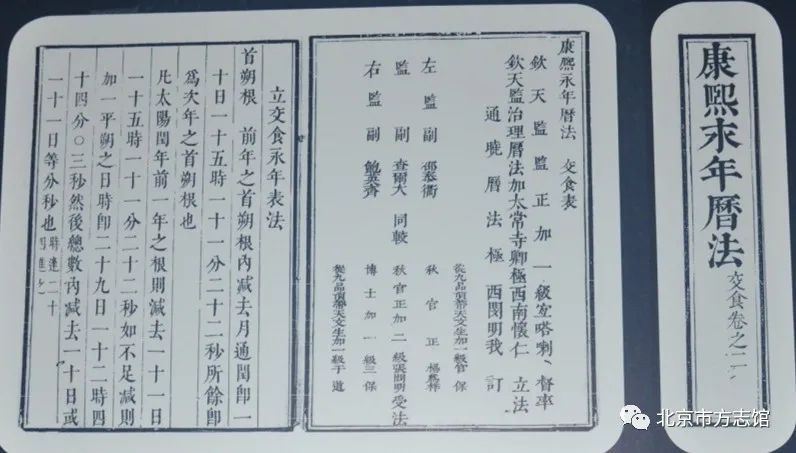 康熙永年曆法
交食卷之二
康熙永年曆法 交食表
欽天監監正加一級宜塔喇、督率
欽天監治理曆法加太常寺卿極西南懷仁 立法
通曉曆法極西閔明我 訂
左監副 邵泰衢
監副 查爾大 同較
右監副 鮑英齊
從九品頂帶天文生加一級官保
秋官正
秋官正加二級張問明 受法
博士加一級三保
從九品頂帶天文生加一級于道
立交食永年表法
首朔根 前年之首朔根內減去月通閏卽一
十日一十五時一十一分二十二秒所餘卽
爲次年之首朔根也
凡太陽閏年前一年之根則減去一十一日
一十五時一十一分二十二秒如不足減則
加一平朔之日時卽二十九日一十二時四
十四分〇三秒然後總數內減去一十日或
一十一日等分秒也 時逢二十四進之
北京市方志馆